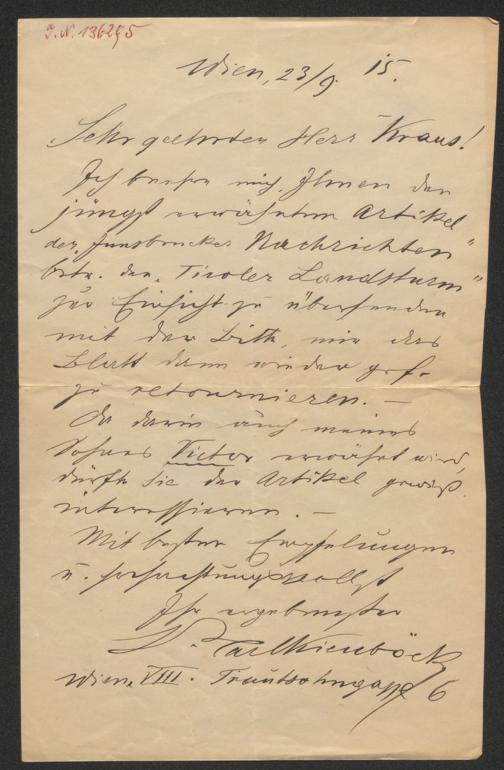 J.N. 136295
Wien, 23/9. 15.
Sehr geehrter Herr Kraus!
Ich beehre mich, Ihnen den
jüngst erwähnten Artikel
der „Innsbrucker Nachrichten“
betr. den „Tiroler Landsturm“
zur Einsicht zu übersenden
mit der Bitte, mir das
Blatt dann wieder gef.
zu retournieren. —
Da darin auch meines
Sohnes Victor erwähnt wird,
dürfte Sie der Artikel gewiß
interessieren. —
Mit besten Empfelungen
u. hochachtungsvollst
Ihr ergebenster
Kienböck
Wien, VIII. Trautsohngasse 6